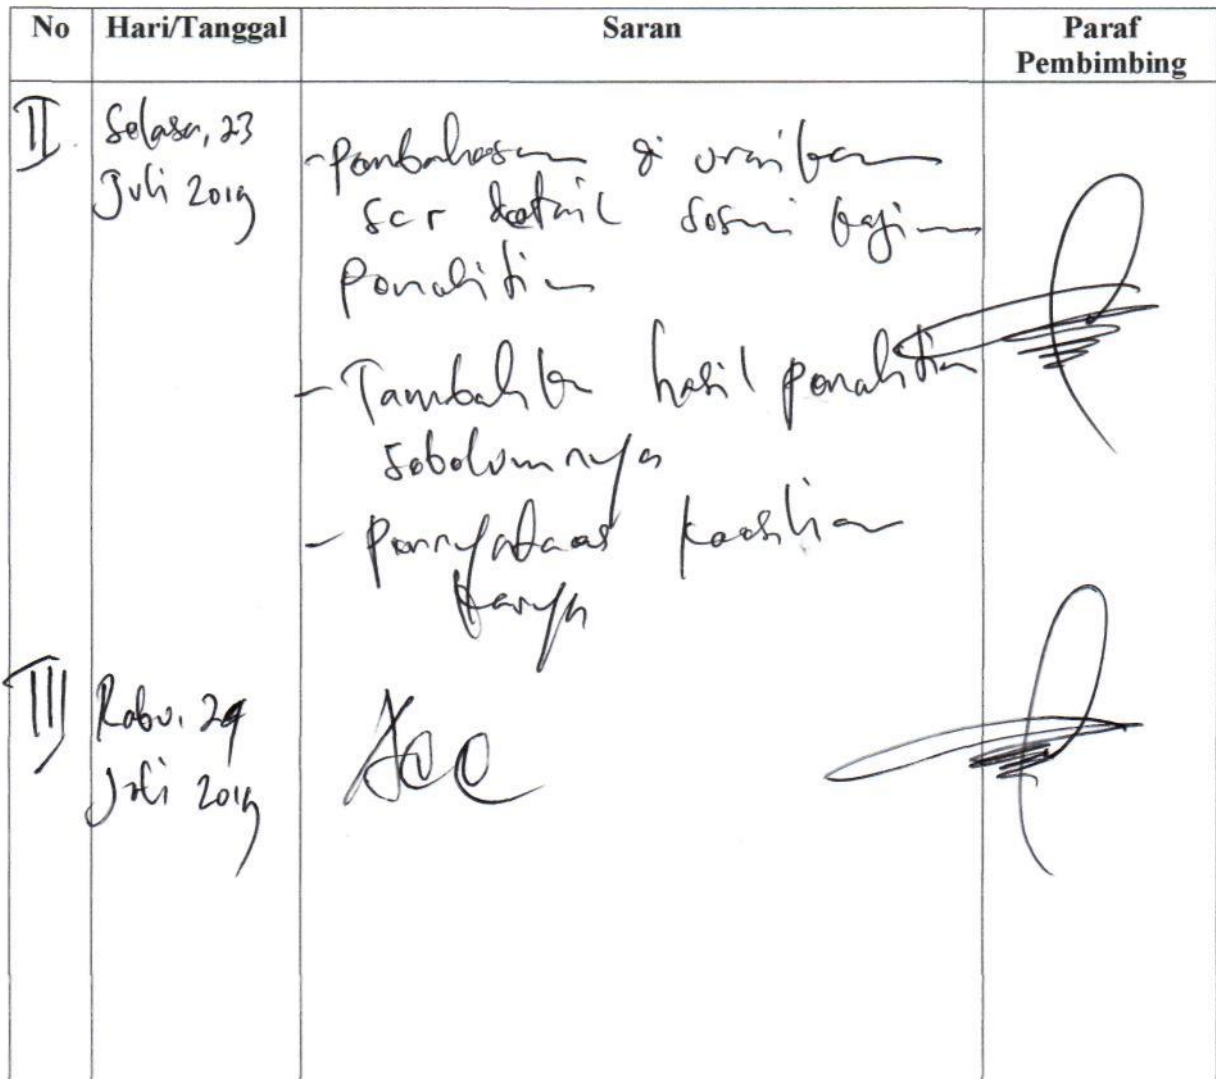 No Hari/Tanggal Saran Paraf Pembimbing
II Selasa, 23
Juli 2019
- pembahasan di uraikan
scr detail sesuai kajian
penelitian
- Tambahkan hasil penelitian
sebelumnya
- pernyataan keaslian
karya
III Rabu, 24
Juli 2019
Acc